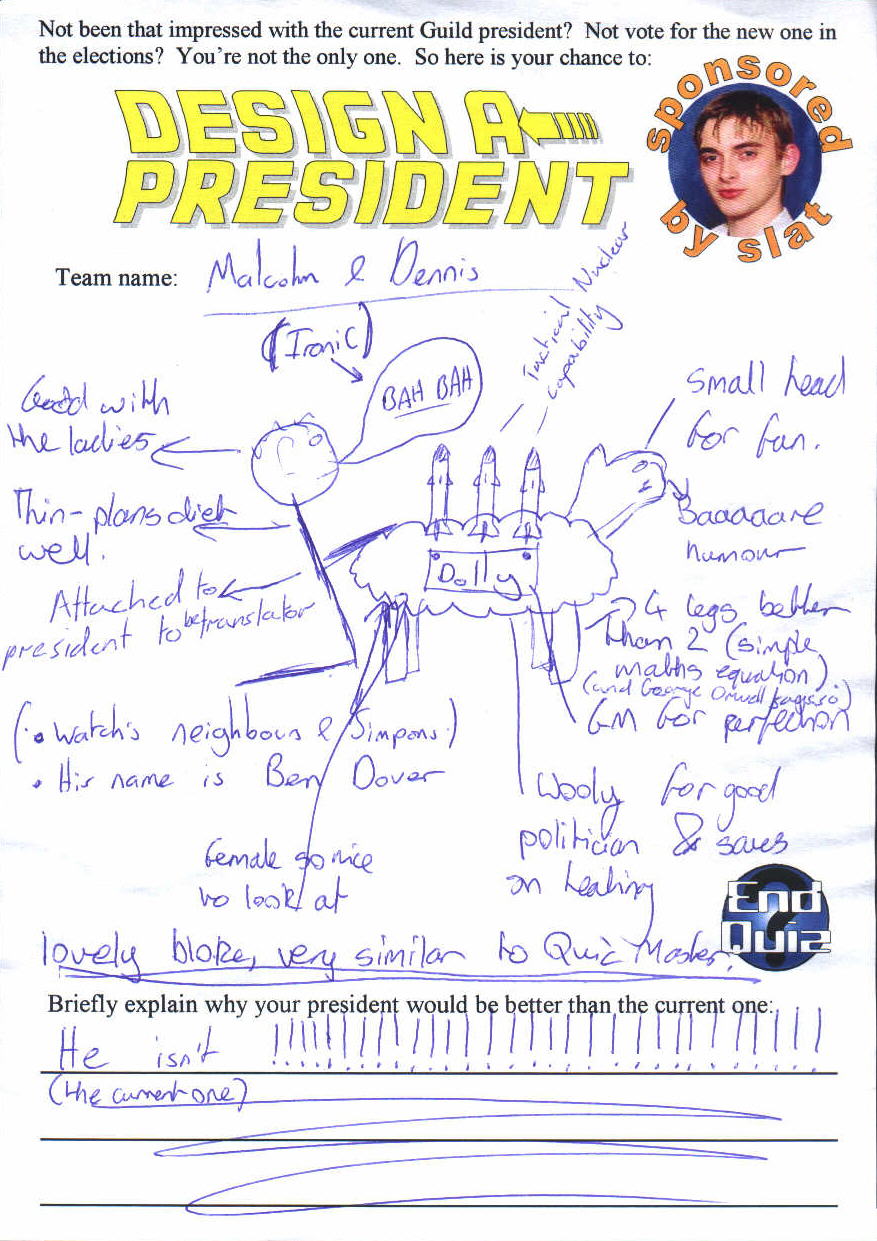 Not been that impressed with the current Guild president?  Not vote for the new one in
the elections?  You're not the only one.  So here is your chance to:
sponsored
by slat
DESIGN A
PRESIDENT
Team name:
Malcolm & Dennis
(Ironic)
BAH BAH
Tactical Nuclear
Capability
Good with
the ladies
Small head
for fun.
Thin - plans diet
well.
Baaaaare
humour
Dolly
Attached to
president to be translator
4 legs better
than 2 (simple
maths equation)
(and George Orwell says so)
GM for perfection
(• Watch's neighbours & Simpons.)
• His name is Ben Dover
Wooly for good
politician & saves
on heating
female so nice
to look at
End
Quiz
lovely bloke, very similar to Quic Master.
Briefly explain why your president would be better than the current one:
He isn't !!!!!!!!!!!!!!!!!!!!!!!!!!!!!!
(the current one)